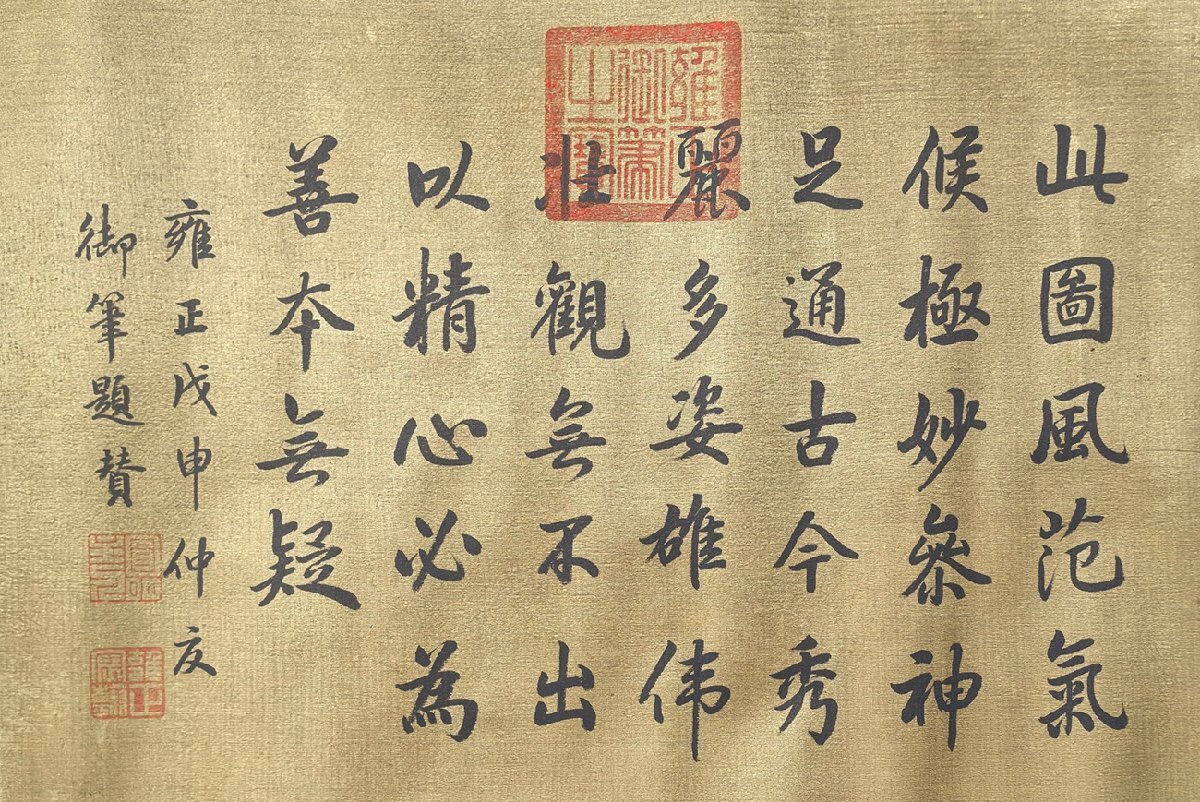 此圖風范氣
候極妙參神
足通古今秀
麗多姿雄伟
壯觀無不出
以精心必為
善本無疑
雍正戊申仲夜
御筆題贊
雍正御筆之寶